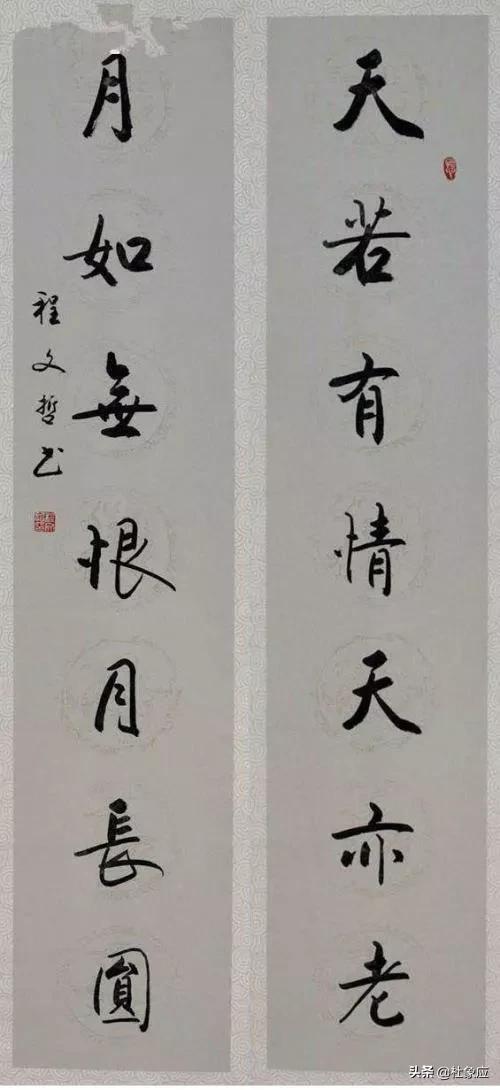 天若有情天亦老
月如無恨月長圓
程文哲书
头条 @杜象应